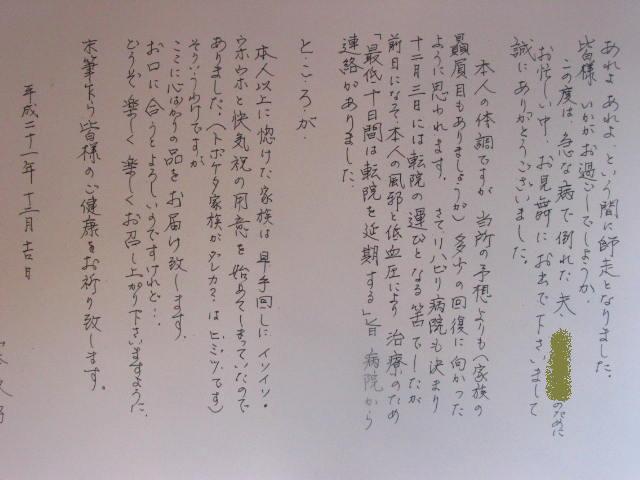 あれよ あれよ、という間に師走となりました。
皆様 いかがお過ごしでしょうか。
この度は、急な病で倒れた 夫、のために
お忙しい中、お見舞にお出で下さいまして
誠にありがとうございました。
本人の体調ですが 当所の予想よりも(家族の
贔屓目もありましょうが) 多少の回復に向かった
ように思われます。 さて リハビリ病院も決まり
十二月三日には転院の運びとなる筈でしたが
前日になって 本人の風邪と低血圧により 治療のため
「最低十日間は転院を延期する」旨 病院から
連絡がありました。
と・こ・ろ・が・
本人以上に惚けた家族は 早手回しに イソイソ・
ウホウホと快気祝の用意を 始めてしまっていたので
ありました。(トボケタ家族が ダレカ? は ヒミツです)
そういうわけですが
ここに心ばかりの品をお届け致します。
お口に合うとよろしいのですけれど…。
どうぞ 楽しく 楽しく お召し上がり下さいますように。
末筆乍ら 皆様のご健康をお祈り致します。
平成二十一年 十二月 吉日